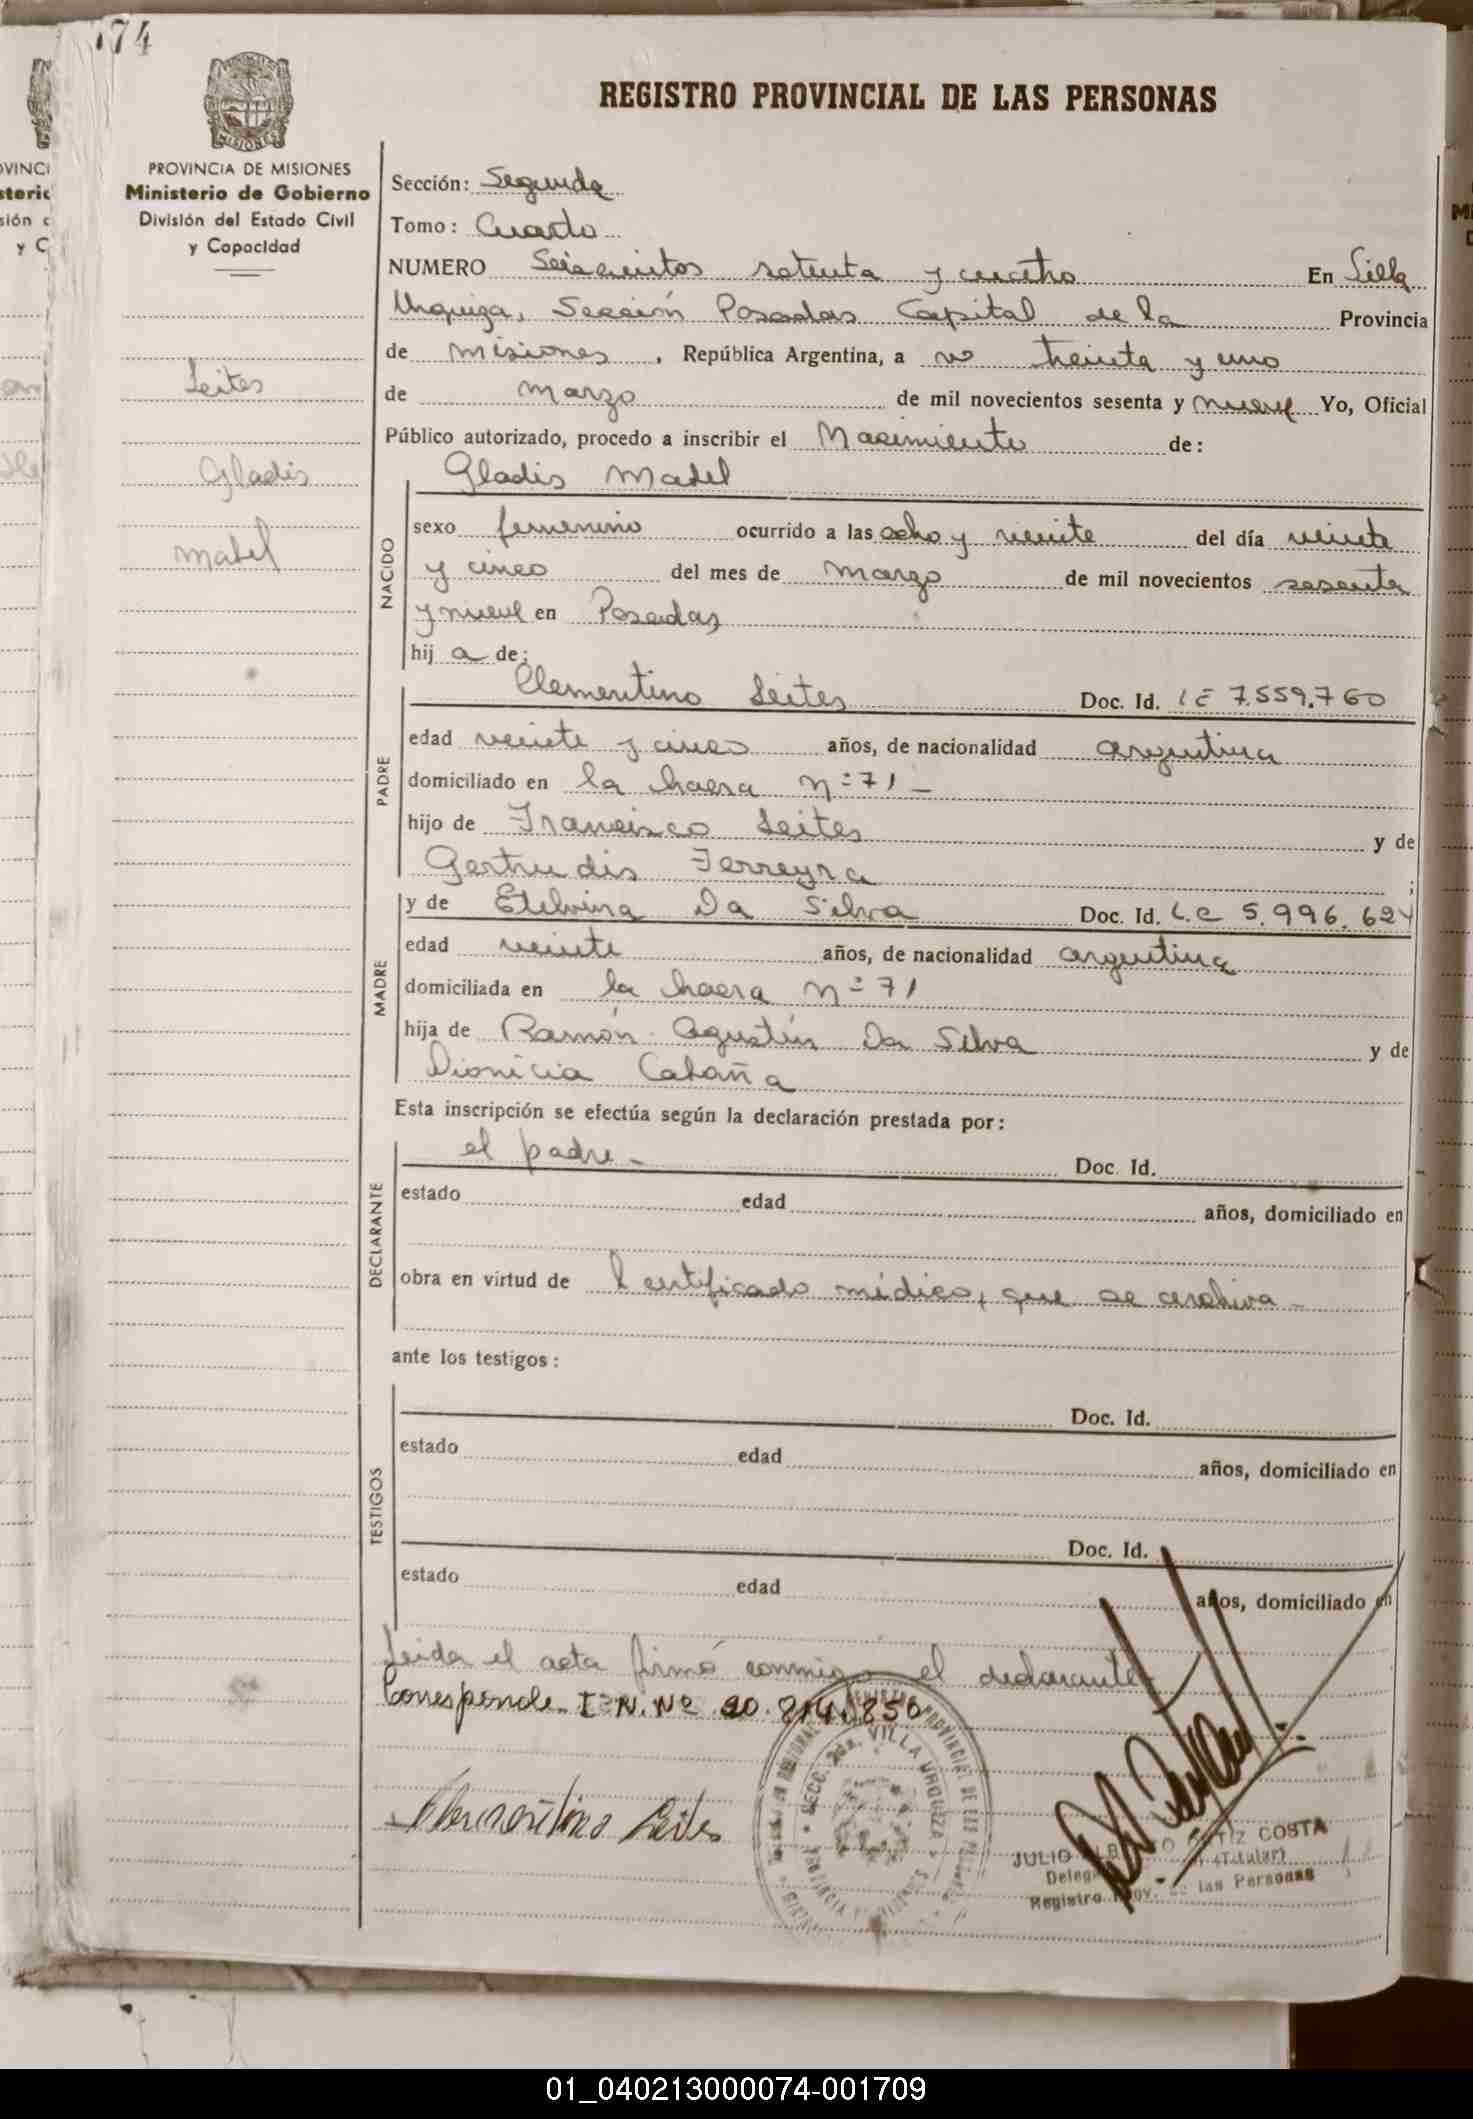 74
REGISTRO PROVINCIAL DE LAS PERSONAS
PROVINCIA DE MISIONES
Ministerio de Gobierno
División del Estado Civil
y Capacidad
Leites
Gladis
Mabel
Sección: Segunda
Tomo: Cuarto
NUMERO Seiscientos setenta y cuatro En Villa
Urquiza, Sección Posadas Capital de la Provincia
de Misiones, República Argentina, a treinta y uno
de marzo de mil novecientos sesenta y nueve Yo, Oficial
Público autorizado, procedo a inscribir el Nacimiento de:
Gladis Mabel
NACIDO
sexo femenino ocurrido a las ocho y veinte del día veinte
y cinco del mes de marzo de mil novecientos sesenta
y nueve en Posadas
hij a de:
PADRE
Clementino Leites Doc. Id. LE 7.559.760
edad veinte y cinco años, de nacionalidad argentina
domiciliado en la chacra nº 71 -
hijo de Francisco Leites y de
Gertrudis Ferreyra ;
MADRE
y de Etelvina Da Silva Doc. Id. L.C 5.996.624
edad veinte años, de nacionalidad argentina
domiciliada en la chacra nº 71
hija de Ramón Agustín Da Silva y de
Dionicia Cabaña
Esta inscripción se efectúa según la declaración prestada por:
DECLARANTE
el padre - Doc. Id.
estado edad años, domiciliado en
obra en virtud de certificado médico, que se archiva -
ante los testigos:
TESTIGOS
Doc. Id.
estado edad años, domiciliado en
Doc. Id.
estado edad años, domiciliado en
Leida el acta firmó conmigo el declarante
Corresponde I.N.Nº 20.814.850
Clementino Leites
SECC. 2da. VILLA URQUIZA
JULIO ALBERTO ORTIZ COSTA
(Titular)
Registro Prov. de las Personas
01_040213000074-001709